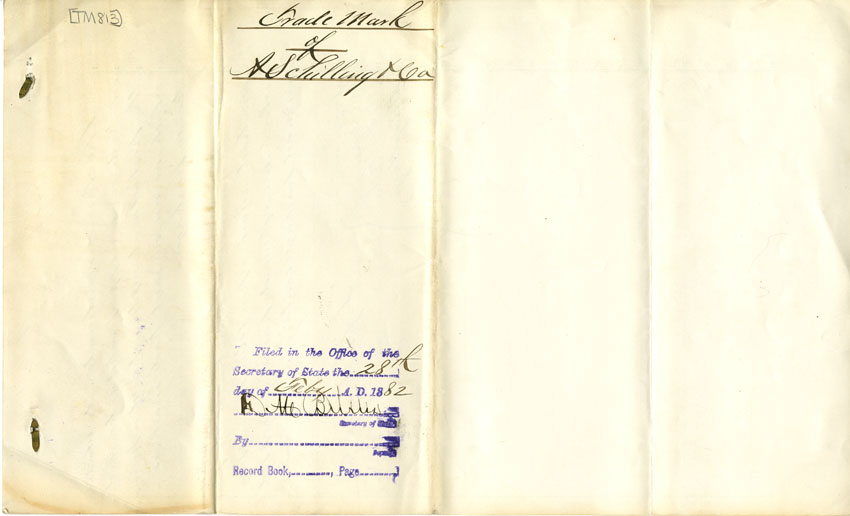 [TM813]
Trade Mark
of
A Schilling & Co
Filed in the Office of the
Secretary of State the 28th
day of Feby A. D. 1882
Secretary of State
By
Deputy
Record Book, , Page